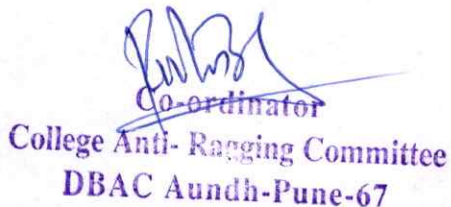 Co-ordinator
College Anti- Ragging Committee
DBAC Aundh-Pune-67